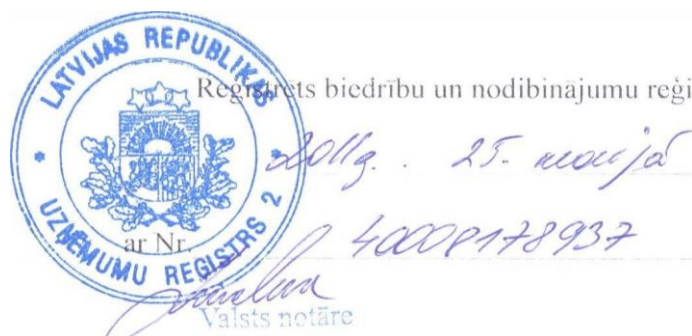 LATVIJAS REPUBLIKAS
UZŅĒMUMU REĢISTRS 2
Reģistrēts biedrību un nodibinājumu reģi
2011g. 25. maijā
ar Nr. 40008178937
Valsts notāre